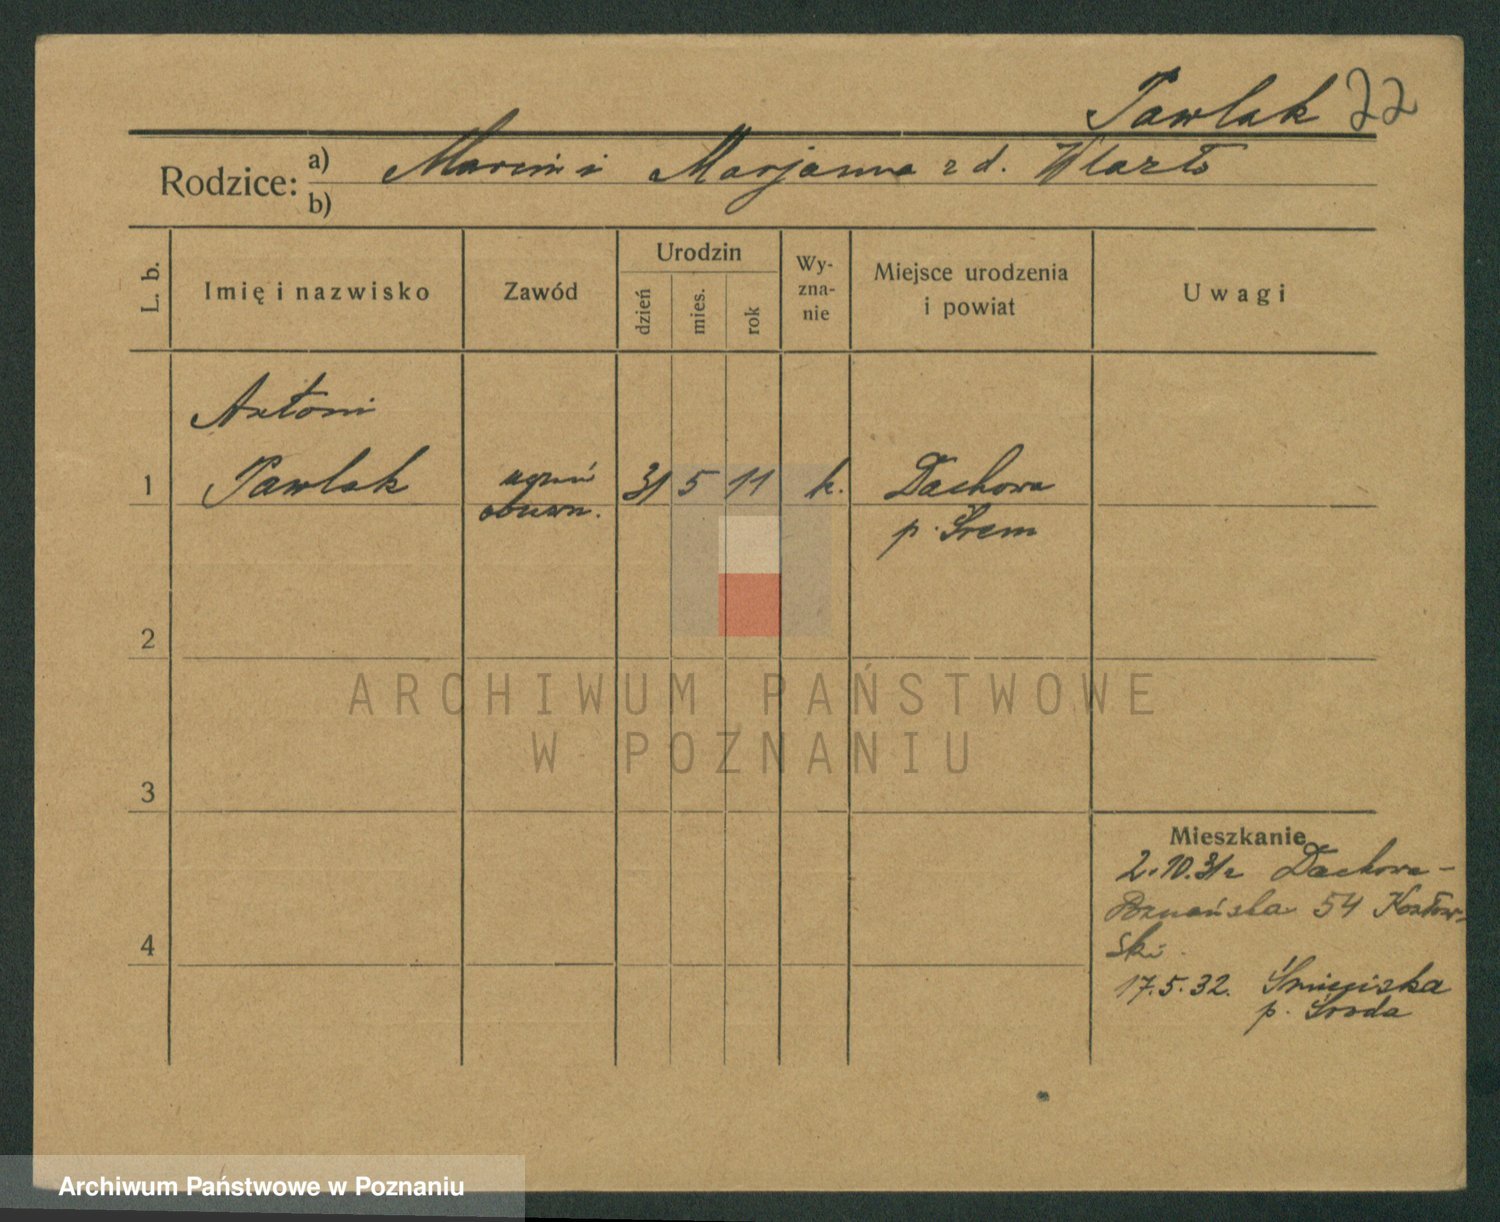 Pawlak 22
Rodzice: a) Marcin i Marjanna z d.
b)
L. b. Imię i nazwisko Zawód Urodzin dzień mies. rok Wy-zna-nie Miejsce urodzenia i powiat Uwagi
Antoni
1 Pawlak uczeń 31 5 11 k. Dachowa
p. Śrem
2
3
Mieszkanie
2.10.31r Dachowa-
Poznańska 54 Kozłow-
4 ski.
17.5.32. Śnieciska
p. Środa
ARCHIWUM PAŃSTWOWE
W POZNANIU
Archiwum Państwowe w Poznaniu